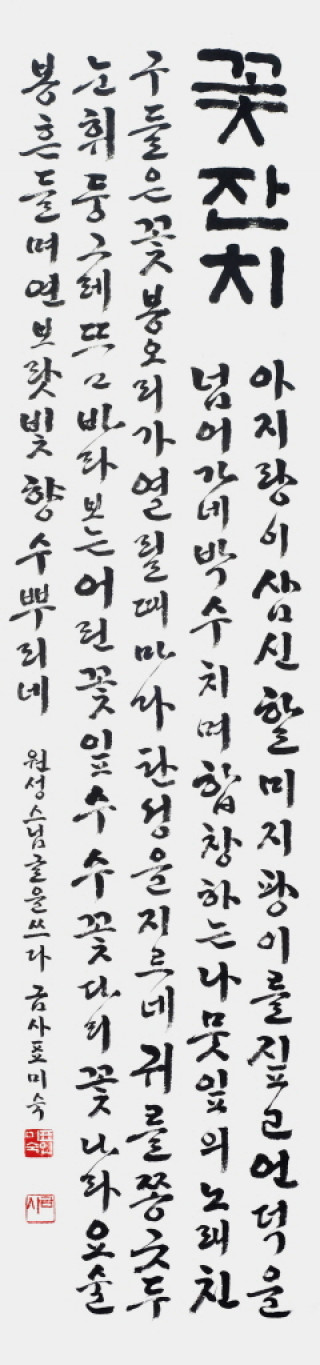 꽃잔치
아지랑이 삼신할미 지팡이를 짚고 언덕을
넘어가네 박수치며 합창하는 나뭇잎의 노래 친
구들은 꽃봉오리가 열릴 때마다 탄성을 지르네 귀를 쫑긋 두
눈 휘둥그레 뜨고 바라보는 어린 꽃잎 수수꽃다리 꽃나라 요술
봉 흔들며 연보랏빛 향수 뿌리네
원성스님 글을 쓰다 금사 표미숙